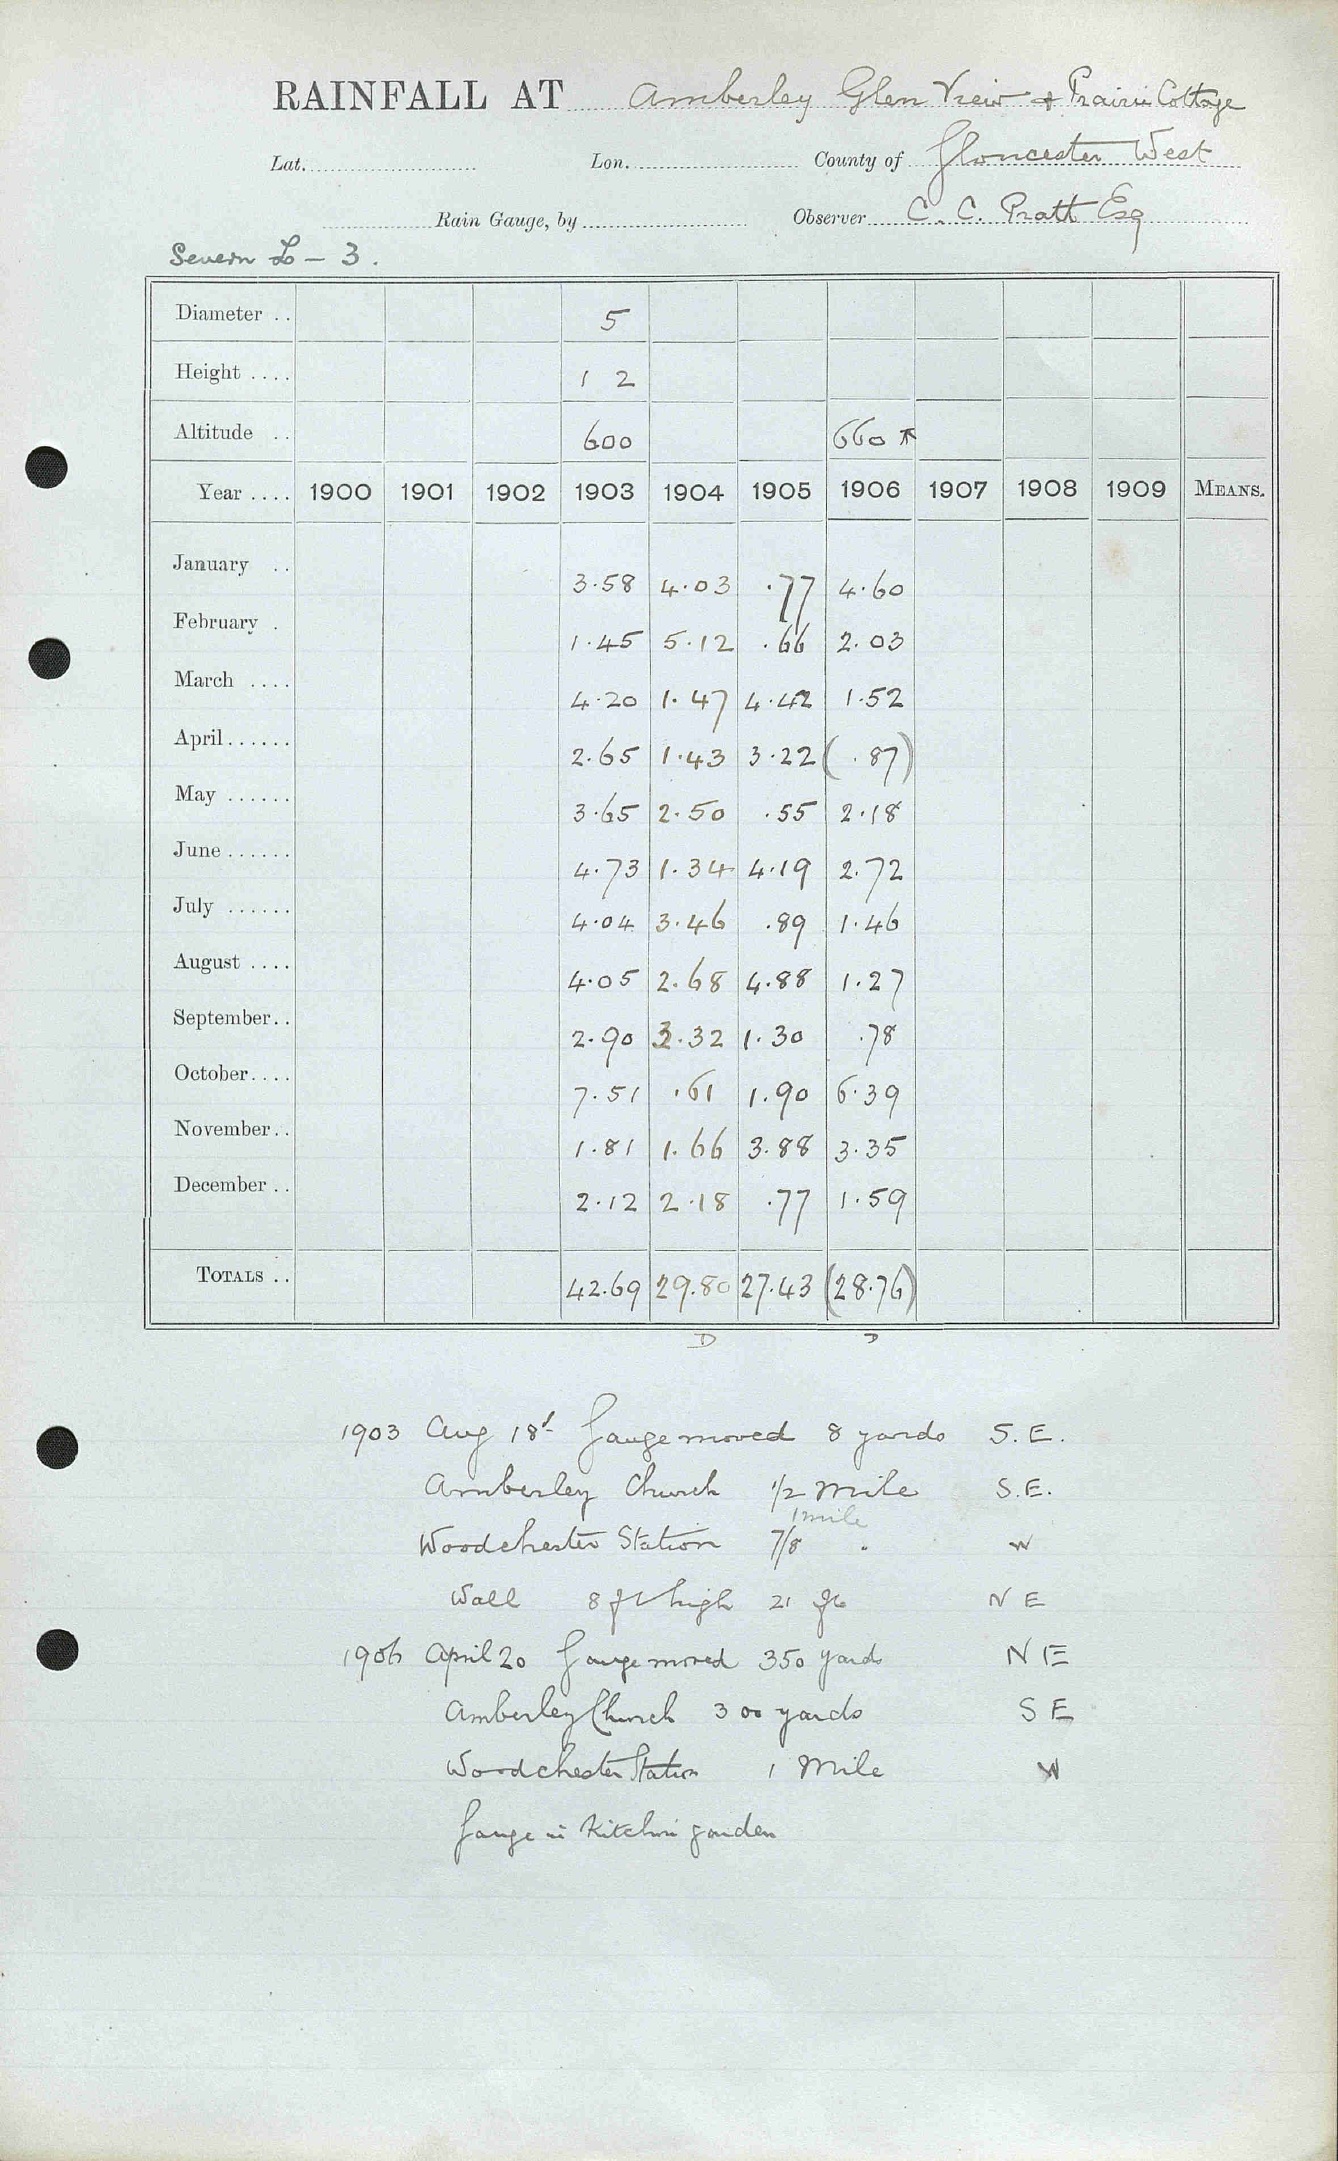 RAINFALL AT Amberley Glen View & Prairie Cottage
Lat. Lon. County of Gloucester West
Rain Gauge, by Observer C. C. Pratt Esq
Severn L - 3.
Diameter .. 5
Height .... 1 2
Altitude .. 600 660
Year .... 1900 1901 1902 1903 1904 1905 1906 1907 1908 1909 MEANS.
January .. 3.58 4.03 .77 4.60
February . 1.45 5.12 .66 2.03
March .... 4.20 1.47 4.42 1.52
April...... 2.65 1.43 3.22 (.87)
May ...... 3.65 2.50 .55 2.18
June ...... 4.73 1.34 4.19 2.72
July ...... 4.04 3.46 .89 1.46
August .... 4.05 2.68 4.88 1.27
September.. 2.90 3.32 1.30 .78
October.... 7.51 .61 1.90 6.39
November.. 1.81 1.66 3.88 3.35
December .. 2.12 2.18 .77 1.59
TOTALS .. 42.69 29.80 27.43 (28.76)
D D
1903 Aug 18 Gauge moved 8 yards S.E.
Amberley Church 1/2 mile S.E.
1 mile
Woodchester Station 7/8 " W
Wall 8 ft high 21 ft NE
1906 April 20 Gauge moved 350 yards NE
Amberley Church 300 yards SE
Woodchester Station 1 Mile W
Gauge in Kitchen garden